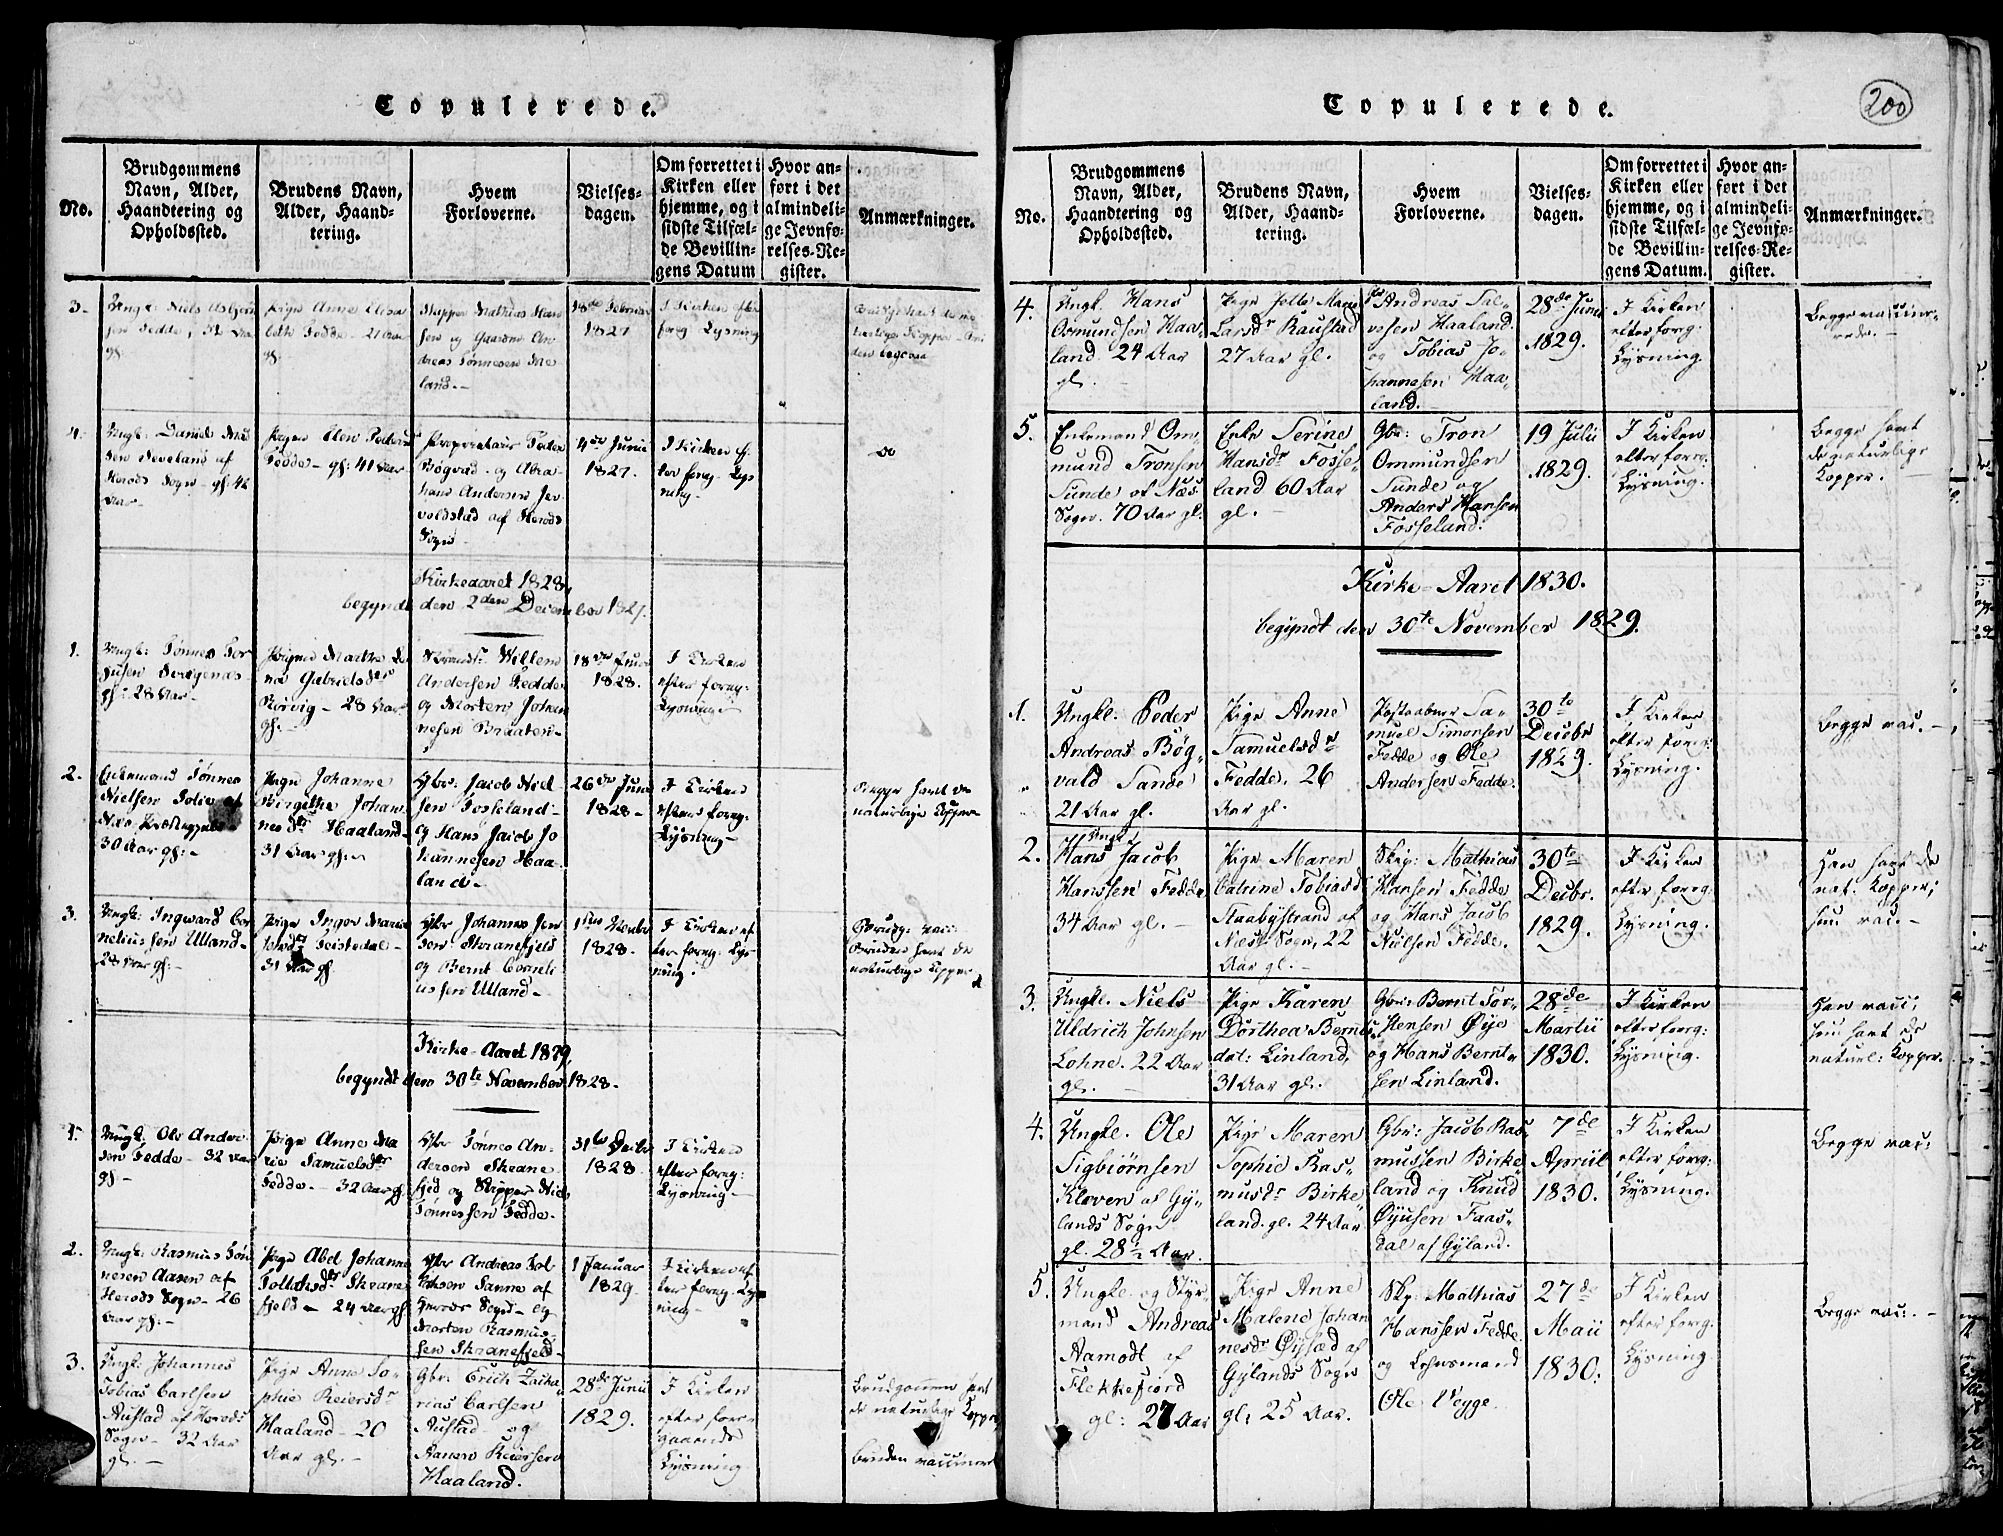 Copulerede.
No.
Brudgommens
Navn, Alder,
Haandtering og
Opholdssted.
Brudens Navn,
Alder, Haand-
tering.
Hvem
Forloverne.
Vielses-
dagen.
Om forrettet i
Kirken eller
hjemme, og i
sidste Tilfæl-
de Bevillin-
gens Datum
Hvor an-
ført i det
almindeli-
ge Jevnfø-
relses-Re-
gister.
Anmærkninger.
3.
Ungk: Niels
Fedde, 31 Aar
gl.
Pige Anne Elisa
beth Fedde - 21 Aar
gl.
Skipper Mathias Han
sen og Gaardm. An
dreas Tønnesen
land.-
18de Februar
1827
I Kirken efter
foreg. Lysning
4.
Ungk: Daniel
af
Herods Sogn - gl: 42
Aar-
Pigen Elen
Fedde - gl: 41 Aar
Proprietair Peder
Bøgvad og Abra
ham Andersen
af Herods
Sogn
4de Junii
1827.
I Kirken ef-
ter foreg. Lys
ning-
do
Kirkeaaret 1828,
begyndt den 2den December 1827.
1.
Ungk: Tønnes
gl: 28 Aar-
Pigen Marthe Le
na Gabrielsdr
Rørvig - 28 Aar
gl:-
Willem
Andersen Fedde
og Morten Johan
nesen Braaten-
18de Junii
1828.
I Kirken
efter foreg:
Lysning-
2.
Enkemand Tønnes
Nielsen
30 Aar gl:-
Pige Johanne
Birgithe Johan
nesdr Haaland-
31 Aar gl:-
Gbr: Jacob Niel
sen Fosseland-
og Hans Jacob Jo
hannesen Haa-
land-
26de Junii
1828-
I Kirken
efter foreg:
Lysning-
Begge havt de
naturlige Kopper-
3.
Ungk: Ingward Cor
neliussen Ulland-
28 Aar gl:-
Pige Inger Marie
Feistedal-
31 Aar gl.
Gbr Johannes Jen
sen Skranefjeld
og Bernt Corneli
ussen Ulland-
1828-
I Kirken ef
ter foreg: Lys-
ning:
Brudg: vac:
Bruden havt de
naturlige Kopper
Kirke-Aaret 1829,
begyndt den 30te November 1828-
1.
Ungk: Ole Ander-
sen Fedde- 32 Aar
gl-
Pige Anne Ma
rie Samuelsdtr
Fedde- 32 Aar gl.
Gbr Tønnes An-
dersen Skrane
fjed og Skipper Niels
Tønnessen Fedde-
31te Decbr
1828-
I Kirken
efter foreg:
Lysning-
2.
Ungk: Rasmus Tøn
nesen Aasen af
Herods Sogn- 26
Aar gl:-
Pige Abel Johanne
Tollaksdr Skrane
fjeld - 24 Aar gl
Gbr Andreas Tol
laksen Sanne af
Herods Sogn- og
Morten Rasmus-
sen Skranefjeld-
1 Januar
1829-
I Kirken ef
ter foreg. Lys
ning-
3.
Ungk. Johannes
Tobias Carlsen
Austad af Herods
Sogn- 32 Aar
gl.-
Pige Anne So-
phie Reiersdr
Haaland- 20
Aar gl.-
Gbr: Erich Zacha-
rias Carlsen
Austad- og
Aanen Reiersen
Haaland.
28de Junii
1829.
I Kirken
efter fore-
gaaende
Lysning
Brudgommen havt
de naturlige Kopper,
Bruden vaccineret
Copulerede.
200
No.
Brudgommens
Navn, Alder,
Haandtering og
Opholdssted.
Brudens Navn,
Alder, Haand-
tering.
Hvem
Forloverne.
Vielses-
dagen.
Om forrettet i
Kirken eller
hjemme, og i
sidste Tilfæl-
de Bevillin-
gens Datum.
Hvor an-
ført i det
almindeli-
ge Jevnfø-
relses-Re-
gister.
Anmærkninger.
4.
Ungk. Hans
Osmundsen Haa-
land. 24 Aar
gl. -
Pige
Larsdr Raustad
27 Aar gl.
Andreas Sal-
vesen Haaland.
og Tobias Jo-
hannesen Haa-
land.-
28de Junii
1829.
I Kirken
efter foreg:
Lysning
Begge vaccine-
rede.-
5.
Enkemand Om-
mund Tronsen
Sunde af Næs
Sogn. 70 Aar gl.
Enke Serine
Hansdr Fosse-
land 60 Aar
gl.-
Gbr: Tron
Ommundsen
Sunde og
Anders Hansen
Fosseland.
19 Julii
1829.
I Kirken
efter foreg:
Lysning.
Begge havt
de naturlige
Kopper.-
Kirke-Aaret 1830.
begyndt den 30te November 1829.
1.
Ungk. Peder
Andreas Bøg-
vald Sande
21 Aar gl.
Pige Anne
Samuelsdr
Fedde. 26
Aar gl.
Postaabner Sa-
muel Simonsen
Fedde og Ole
Andersen Fedde.
30te
Decbr
1829.
I Kirken
efter foreg:
Lysning.
Begge vac.-
2.
Ungk.
Hans Jacob
Hanssen Fedde
34 Aar gl.-
Pige Maren
Catrine Tobiasd
Staabystrand af
Næs Sogn, 22
Aar gl.-
Skip: Mathias
Hansen Fedde
og Hans Jacob
Nielsen Fedde.
30te
Decbr.
1829.
I Kirken
efter foreg:
Lysning.
Han havt de
nat: Kopper;
hun vac.-
3.
Ungk. Niels
Uldrich Johnsen
Lohne. 22 Aar
gl. -
Pige Karen
Dorthea Bernts
dat: Linland,
31 Aar gl.
Gbr: Bernt Tor-
stensen Øye
og Hans Bernt-
sen Linland.
28de
Martii
1830.
I Kirken
efter foreg:
Lysning.
Han vacc;
hun havt de
naturl: Kopper.
4.
Ungk. Ole
Sigbiørnsen
Kloven af Gy-
lands Sogn
gl. 28½ Aar.
Pige Maren
Sophie Ras-
musdr Birke
land. gl. 24 Aar
Gbr: Jacob Ras-
mussen Birke-
land og Knud
Øyusen Faas-
dal af Gyland.
7de
Apriil
1830.
I Kirken
efter foreg:
Lysning.
Begge vac:
5.
Ungk. og Styr-
mand Andreas
Aamodt af
Flekkefiord
gl: 27 Aar
Pige Anne
Malene Johan
nesdr Øysæd af
Gylands Sogn
gl. 25 Aar.
Skp: Mathias
Hanssen Fedde.
og Lehnsmand
Ole Vegge.
27de
Maii
1830.
I Kirken
efter foreg:
Lysning.
Begge vac.-